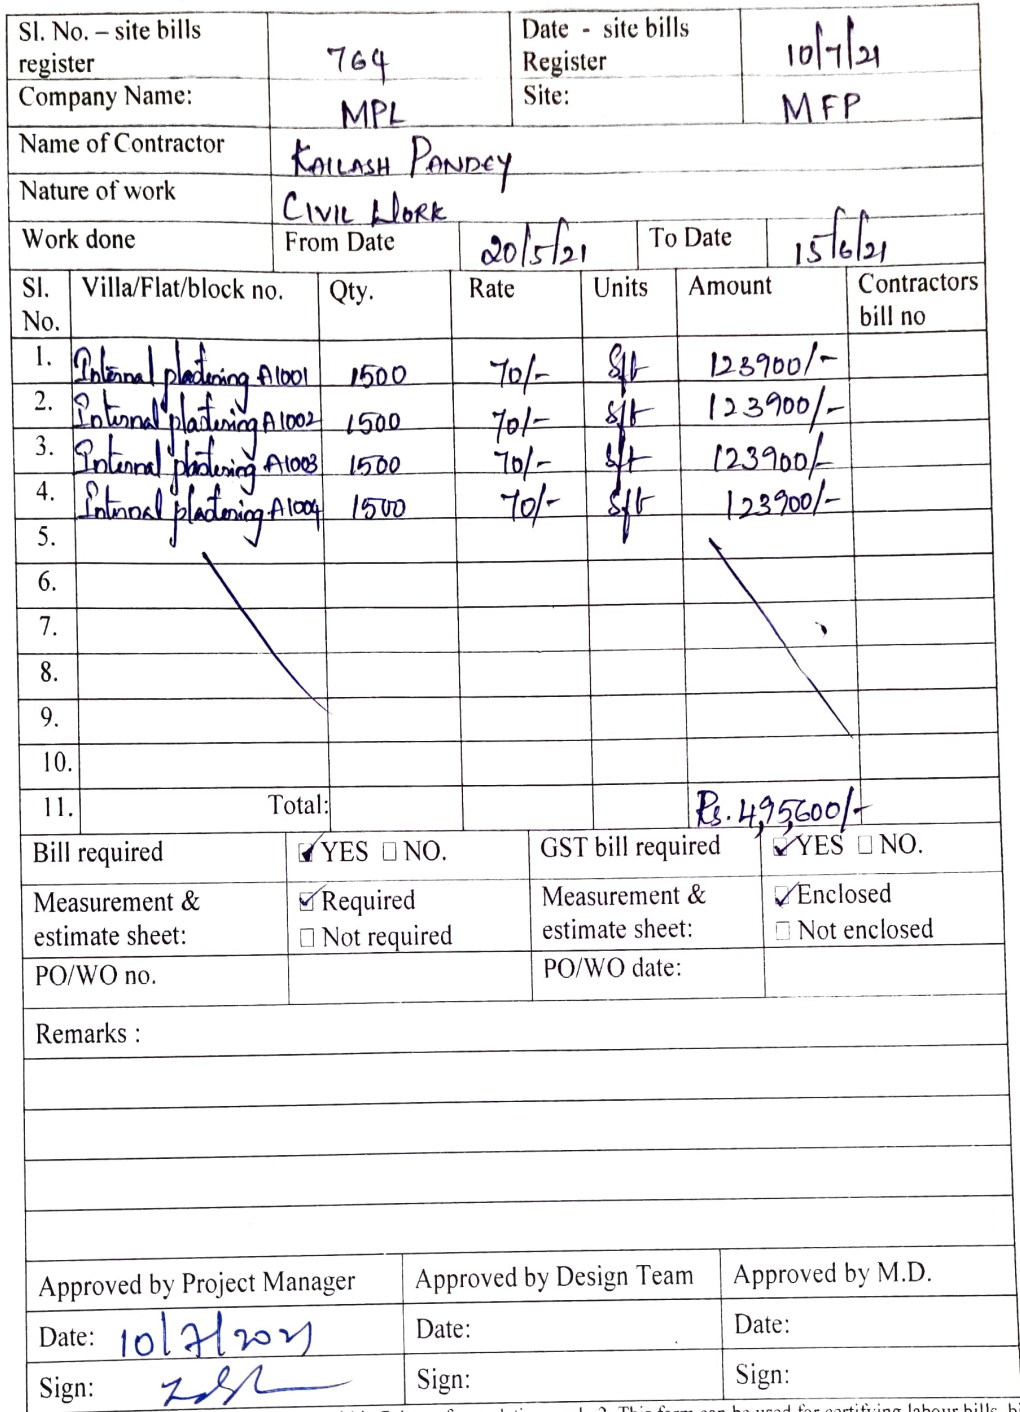 Sl. No. – site bills register 764 Date - site bills Register 10/7/21
Company Name: MPL Site: MFP
Name of Contractor KAILASH PANDEY
Nature of work CIVIL WORK
Work done From Date 20/5/21 To Date 15/6/21
Sl. No. Villa/Flat/block no. Qty. Rate Units Amount Contractors bill no
1. Internal plastering A1001 1500 70/- Sft 123900/-
2. Internal plastering A1002 1500 70/- Sft 123900/-
3. Internal plastering A1003 1500 70/- Sft 123900/-
4. Internal plastering A1004 1500 70/- Sft 123900/-
5.
6.
7.
8.
9.
10.
11. Total: Rs. 4,95,600/-
Bill required YES NO. GST bill required YES NO.
Measurement & estimate sheet: Required Not required Measurement & estimate sheet: Enclosed Not enclosed
PO/WO no. PO/WO date:
Remarks :
Approved by Project Manager Approved by Design Team Approved by M.D.
Date: 10/7/2021 Date: Date:
Sign: Sign: Sign: